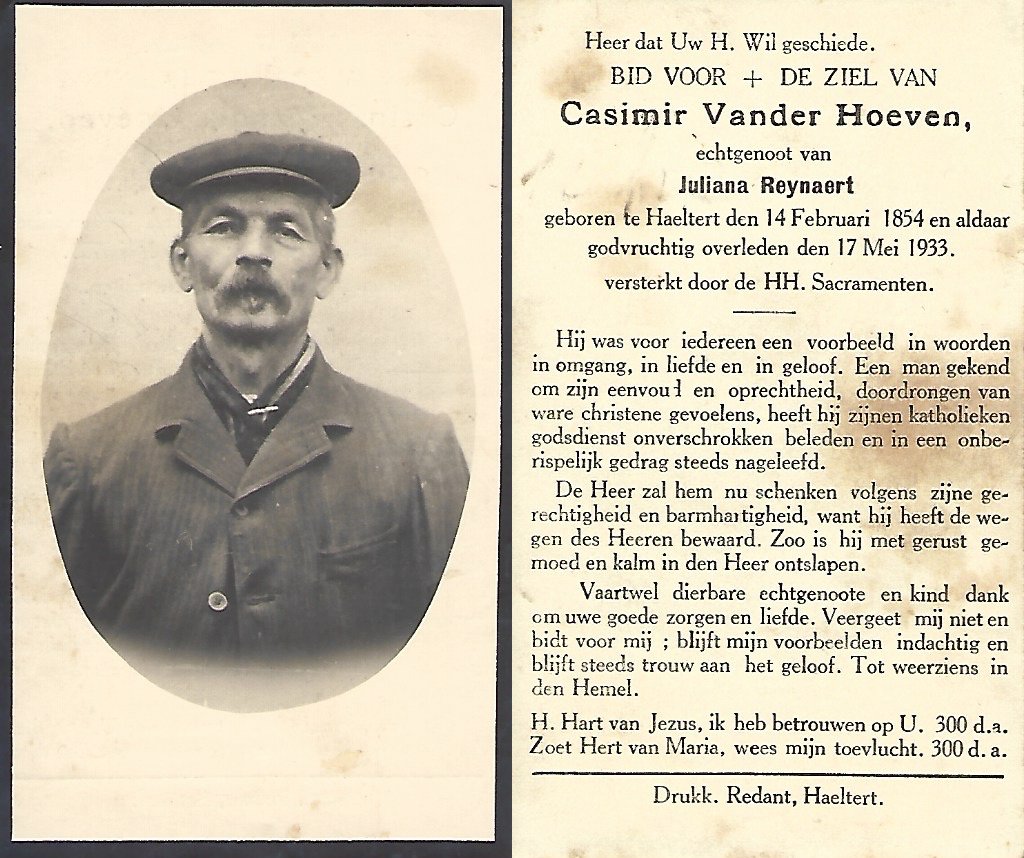 Heer dat Uw H. Wil geschiede.
BID VOOR + DE ZIEL VAN
Casimir Vander Hoeven,
echtgenoot van
Juliana Reynaert
geboren te Haeltert den 14 Februari 1854 en aldaar
godvruchtig overleden den 17 Mei 1933.
versterkt door de HH. Sacramenten.
Hij was voor iedereen een voorbeeld in woorden
in omgang, in liefde en in geloof. Een man gekend
om zijn eenvoud en oprechtheid, doordrongen van
ware christene gevoelens, heeft hij zijnen katholieken
godsdienst onverschrokken beleden en in een onbe-
rispelijk gedrag steeds nageleefd.
De Heer zal hem nu schenken volgens zijne ge-
rechtigheid en barmhartigheid, want hij heeft de we-
gen des Heeren bewaard. Zoo is hij met gerust ge-
moed en kalm in den Heer ontslapen.
Vaartwel dierbare echtgenoote en kind dank
om uwe goede zorgen en liefde. Veergeet mij niet en
bidt voor mij ; blijft mijn voorbeelden indachtig en
blijft steeds trouw aan het geloof. Tot weerziens in
den Hemel.
H. Hart van Jezus, ik heb betrouwen op U. 300 d.a.
Zoet Hert van Maria, wees mijn toevlucht. 300 d. a.
Drukk. Redant, Haeltert.